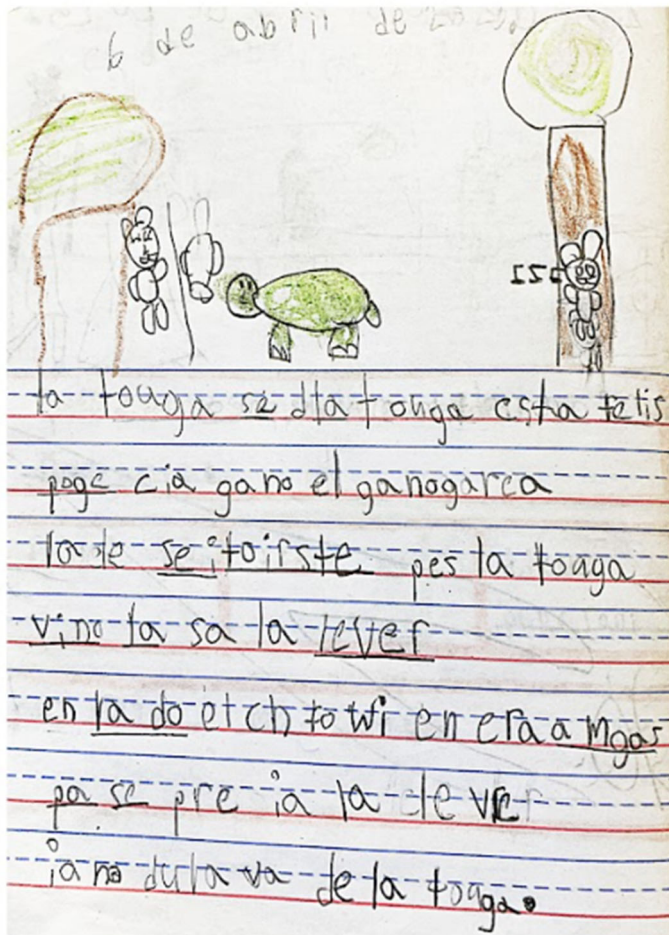 6 de abril de
la touga se dla touga esta felis
poge cia gano el ganogarca
la le se itoirste pes la touga
vino ta sa la lever
en la do etch to wi en era a mgas
pa se pre ia la lever
ia no dula va de la touga.